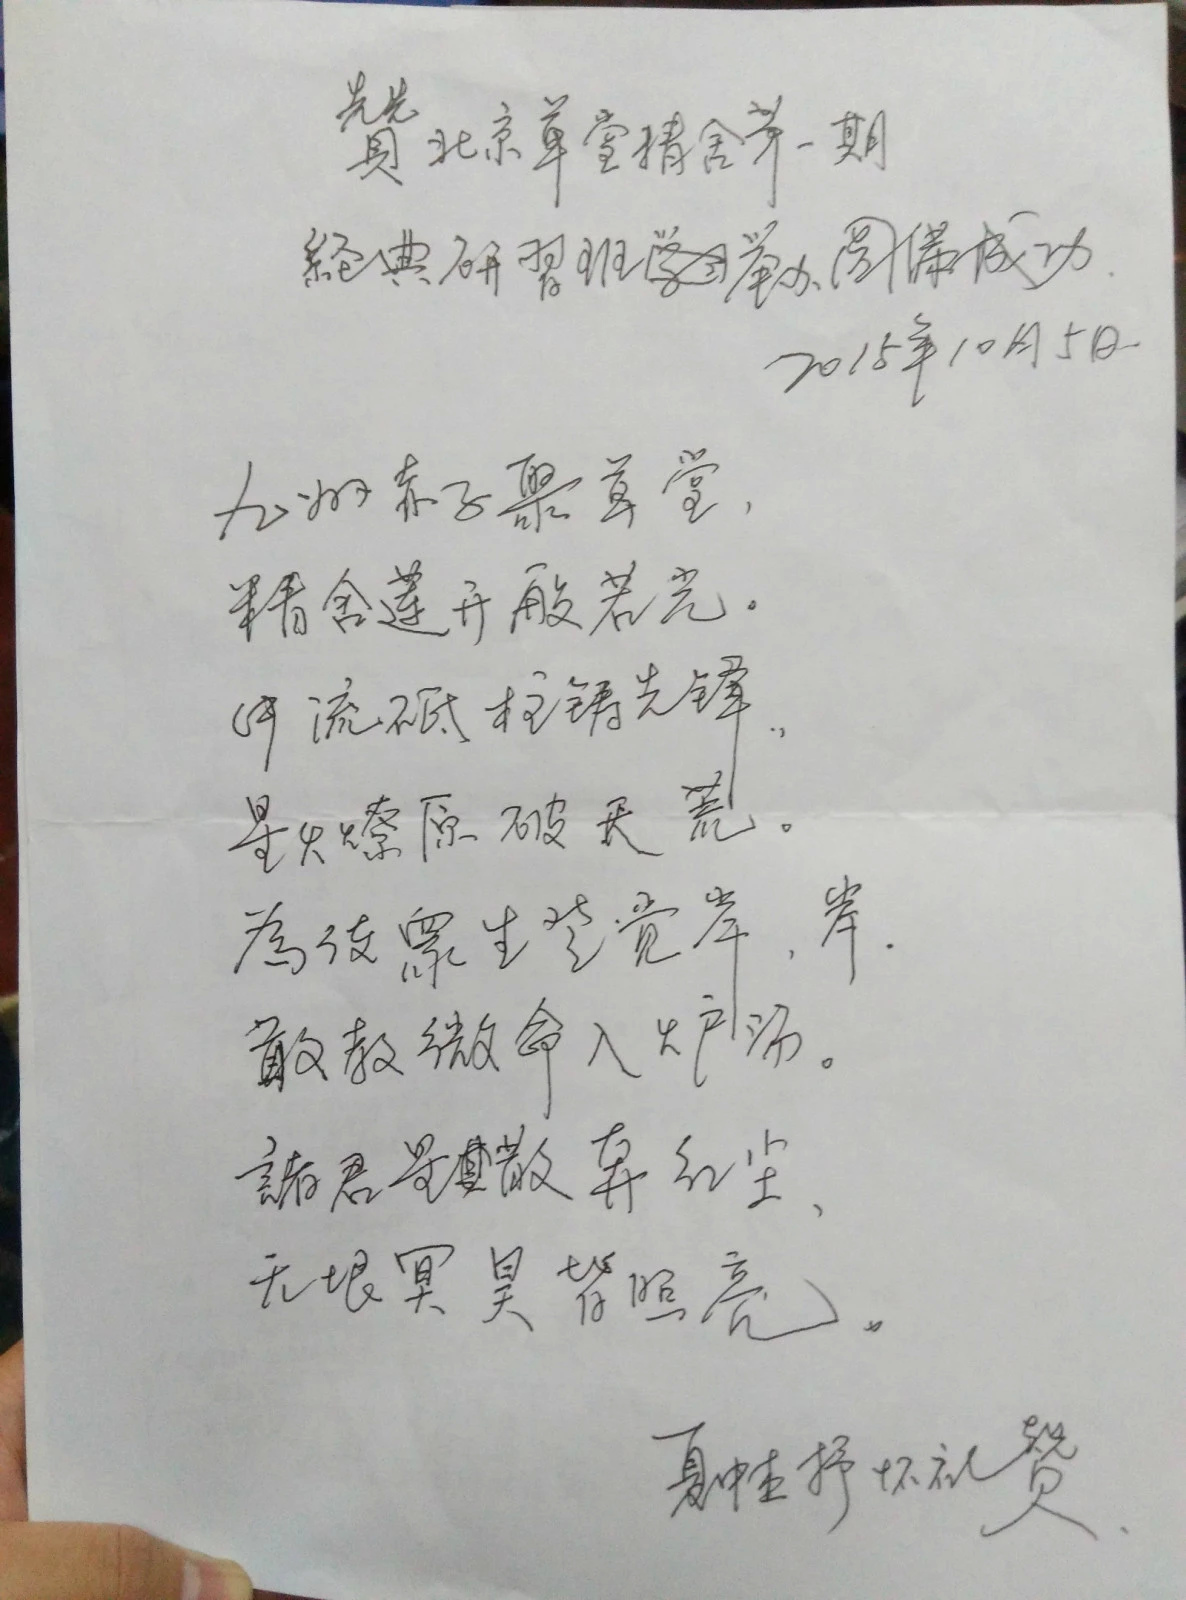 贊北京草堂精舍第一期
經典研習班舉办圆满成功.
2015年10月5日
九州赤子聚草堂,
精舍莲开般若光。
中流砥柱铸先锋,
星火燎原破天荒。
為使眾生登觉岸,岸.
敢教微命入炉汤。
諸君星散奔红尘,
无垠冥昊皆照亮。
夏中圭抒怀礼赞.